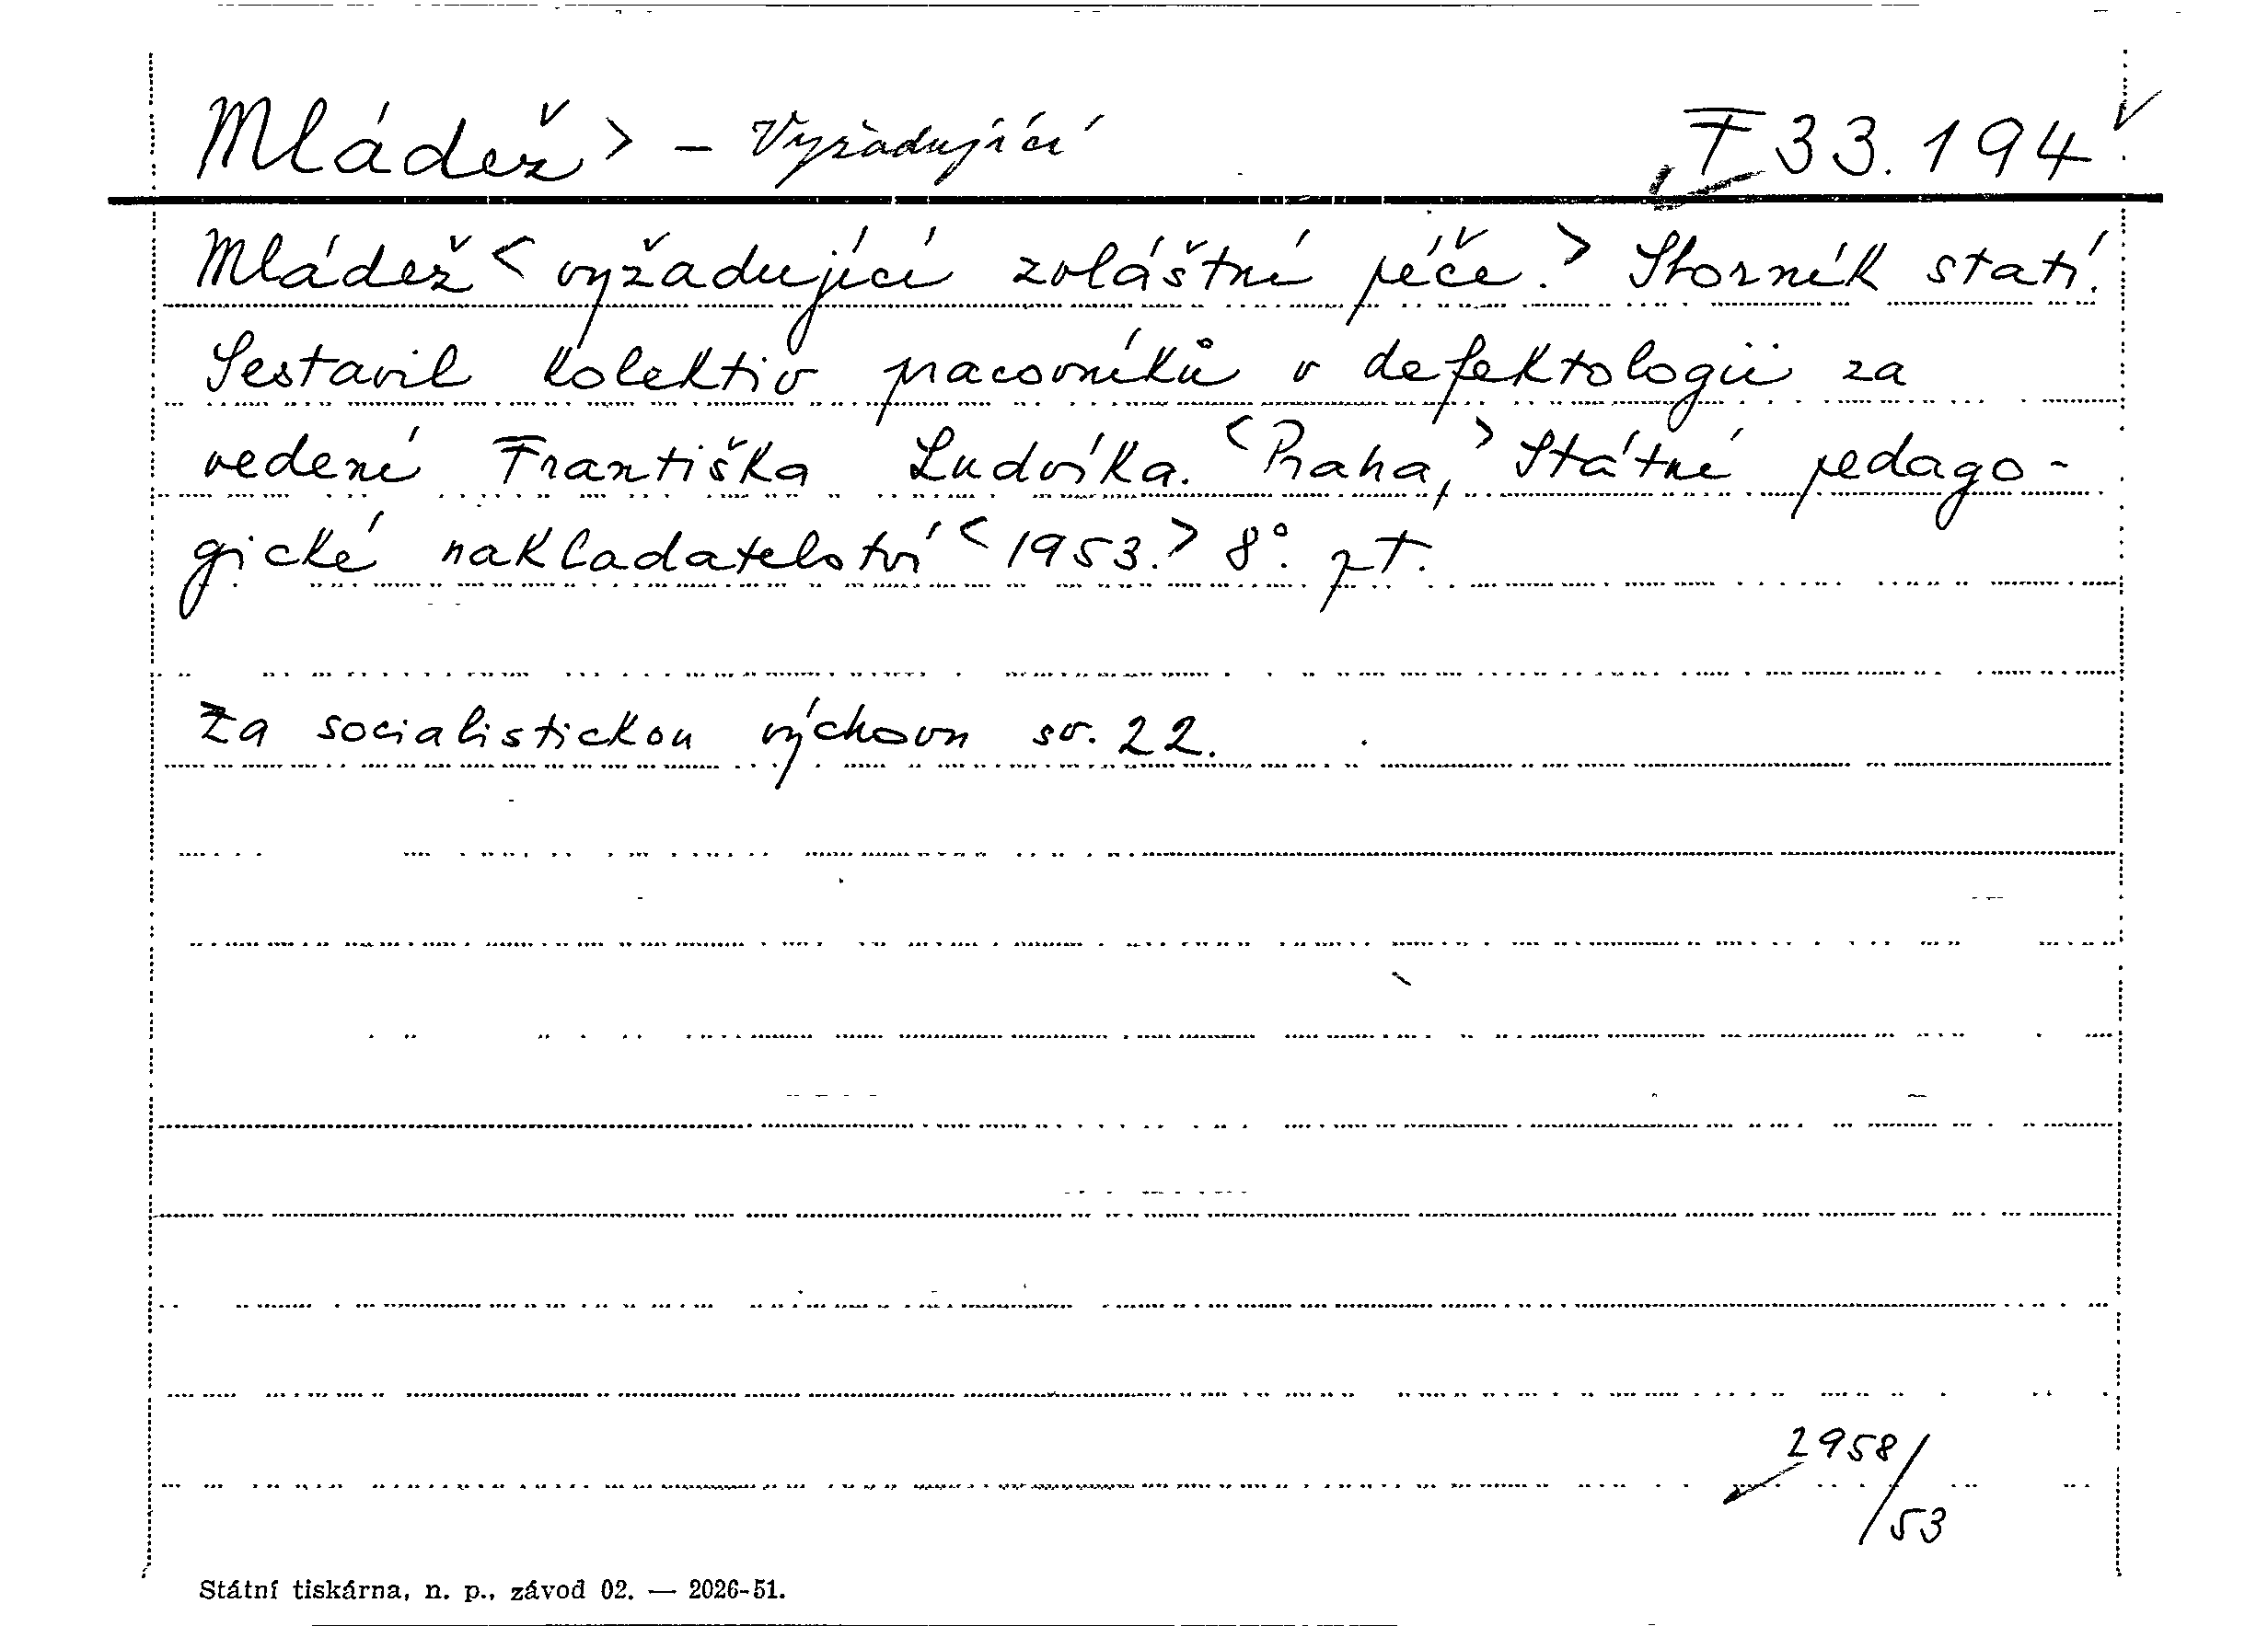 Mládež > - Vyžadující F 33.194
Mládež < vyžadující zvláštní péče. > Sborník statí.
Sestavil kolektiv pracovníků v defektologii za
vedení Františka Ludvíka. < Praha, > Státní pedago-
gické nakladatelství < 1953. > 8°. pt.
Za socialistickou výchovu sv. 22.
2958/
53
Státní tiskárna, n. p., závod 02. — 2026-51.